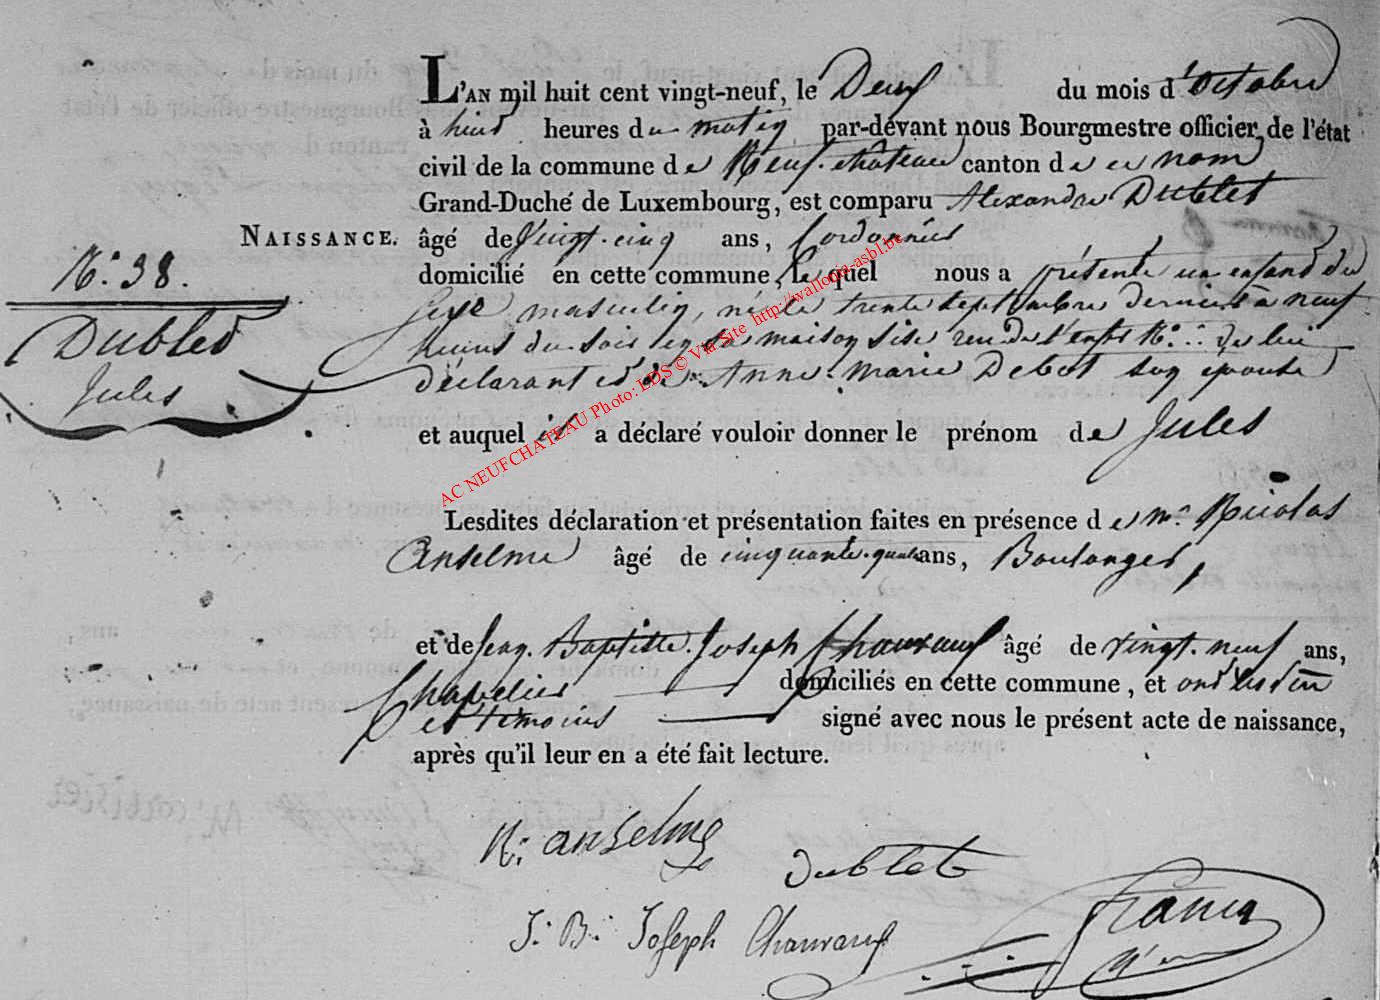 L'AN mil huit cent vingt-neuf, le Deux du mois d'Octobre
à huit heures du matin par-devant nous Bourgmestre officier de l'état
civil de la commune de Neufchâteau canton de ce nom
Grand-Duché de Luxembourg, est comparu Alexandre Dublet
NAISSANCE.
N.° 38.
Dublet
Jules
âgé de Vingt-cinq ans, Cordonnier
domicilié en cette commune, Lequel nous a présenté un enfant du
sexe masculin, né le trente septembre dernier à neuf
heures du soir en sa maison sise rue de N.° de lui
déclarant et de Anne Marie Debut son épouse
et auquel il a déclaré vouloir donner le prénom de Jules
Lesdites déclaration et présentation faites en présence de mr Nicolas
Anselme âgé de cinquante-quatre ans, Boulanger,
et de Jean-Baptiste-Joseph Chauvaux âgé de vingt-neuf ans,
Chapelier domiciliés en cette commune, et ont les
témoins signé avec nous le présent acte de naissance,
après qu'il leur en a été fait lecture.
N: anselme
Dublet
J: B: Joseph Chauvaux
AC NEUFCHATEAU Photo: LDS © Via Site http://wallonia-asbl.be